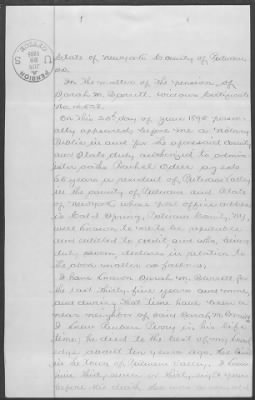 State of New York County of Putnam
ss.
In the matter of the pension of
Sarah M. Barrett widow's Certificate
No.
On this 20th day of June 1898 person-
ally appeared before me a Notary
Public in and for the aforesaid County
and State duly authorized to admin-
ister oaths aged
68 years a resident of Putnam Valley
in the County of Putnam and State
of New York whose post office address
is Cold Spring, Putnam County N.Y.
well known to me to be reputable
and entitled to credit and who being
duly sworn declares in relation to
the above matter as follows;
I have known Sarah M. Barrett for
the last thirty five years and more
and during that time have been a
near neighbor of said Sarah M. Barrett
I knew Perry in his life
time; he died to the best of my knowl-
edge about ten years ago,
in the town of Putnam Valley. I knew
him thirty seven or thirty eight years
before his death
U S PENSION OFFICE